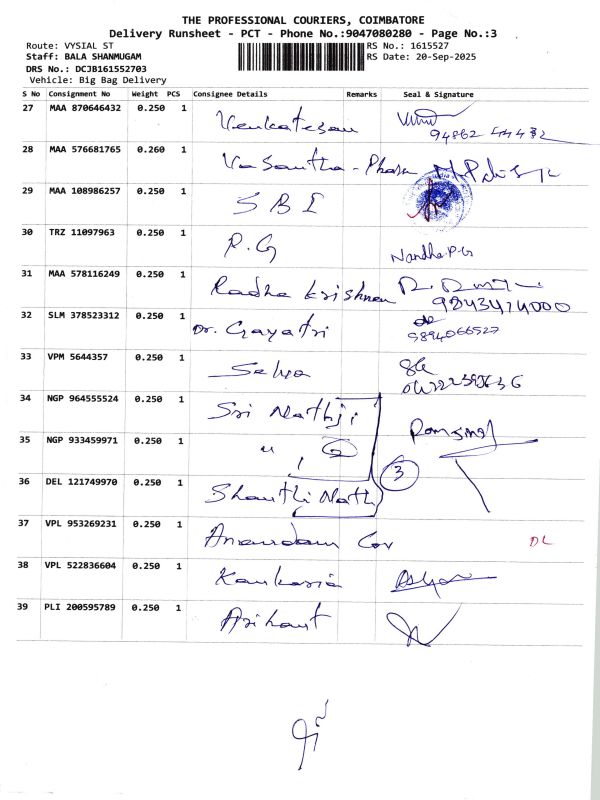 THE PROFESSIONAL COURIERS, COIMBATORE
Delivery Runsheet - PCT - Phone No.:9047080280 - Page No.:3
Route: VYSIAL ST RS No.: 1615527
Staff: BALA SHANMUGAM RS Date: 20-Sep-2025
DRS No.: DCJB161552703
Vehicle: Big Bag Delivery
S No Consignment No Weight PCS Consignee Details Remarks Seal & Signature
27 MAA 870646432 0.250 1 Venkatesan
28 MAA 576681765 0.260 1 Vasantha -
29 MAA 108986257 0.250 1 S B I
30 TRZ 11097963 0.250 1 P. G Nandha P.G
31 MAA 578116249 0.250 1 Radha krishnan
9843474000
32 SLM 378523312 0.250 1 Dr. Gayatri
9894066527
33 VPM 5644357 0.250 1
34 NGP 964555524 0.250 1 Sri Nathji
35 NGP 933459971 0.250 1 "
3
36 DEL 121749970 0.250 1 Shanthi Nath
37 VPL 953269231 0.250 1 Anandam Cov DL
38 VPL 522836604 0.250 1 Kankaria
39 PLI 200595789 0.250 1 Arihant